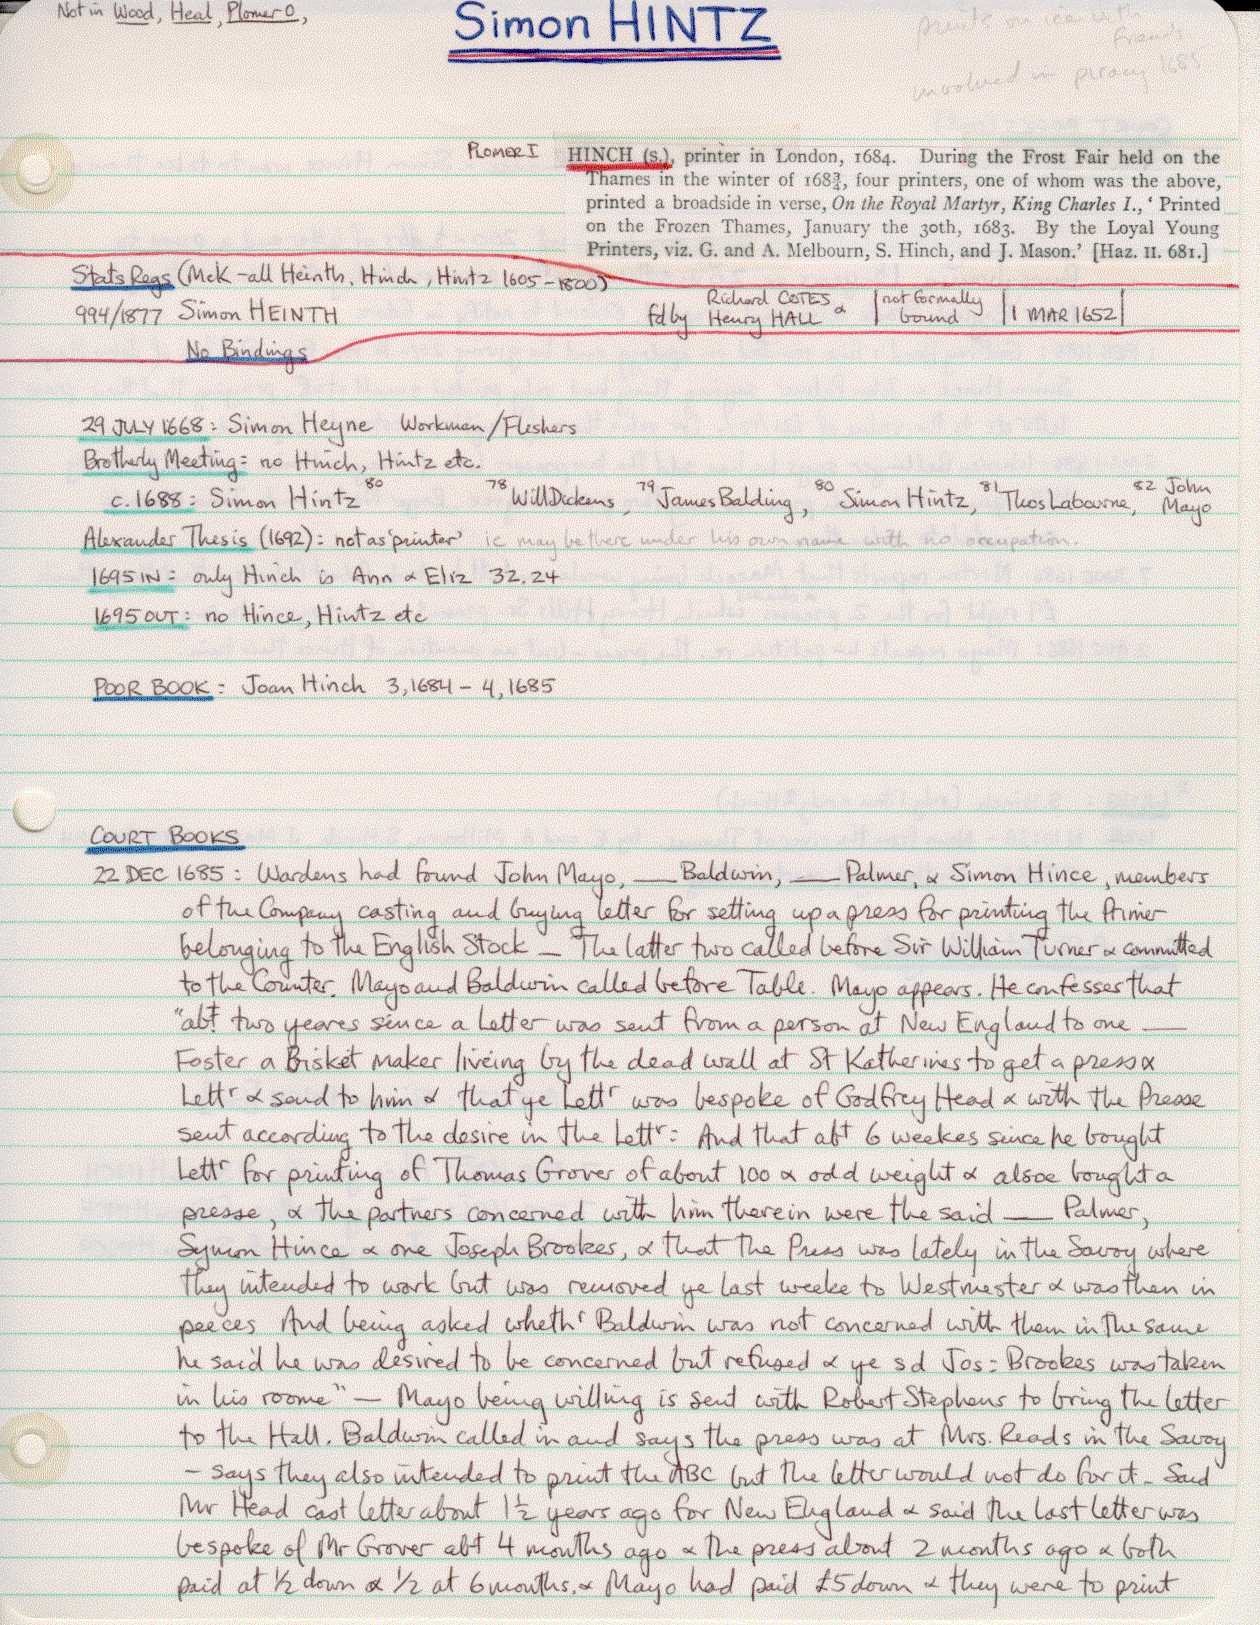 Not in Wood, Heal, Plomer O,
Simon HINTZ
prints on ice with
friends
involved in piracy 1685
PLOMER I
HINCH (S.), printer in London, 1684. During the Frost Fair held on the
Thames in the winter of 168¾, four printers, one of whom was the above,
printed a broadside in verse, On the Royal Martyr, King Charles I., ‘ Printed
on the Frozen Thames, January the 30th, 1683. By the Loyal Young
Printers, viz. G. and A. Melbourn, S. Hinch, and J. Mason.’ [Haz. II. 681.]
Stats Regs (McK - all Heinth, Hinch, Hintz 1605-1800)
994/1877 Simon HEINTH fd by Richard COTES & Henry HALL | not formally bound | 1 MAR 1652 |
No Bindings
29 JULY 1668: Simon Heyne Workman/Fleshers
Brotherly Meeting: no Hinch, Hintz etc.
c. 1688: Simon Hintz 80 78 Will Dickens, 79 James Balding, 80 Simon Hintz, 81 Thos Labourne, 82 John Mayo
Alexander Thesis (1692): not as 'printer' ie may be there under his own name with no occupation.
1695 IN: only Hinch is Ann & Eliz 32.24
1695 OUT: no Hince, Hintz etc
POOR BOOK: Joan Hinch 3,1684 - 4,1685
COURT BOOKS
22 DEC 1685: Wardens had found John Mayo, ___ Baldwin, ___ Palmer, & Simon Hince, members
of the Company casting and buying letter for setting up a press for printing the Primer
belonging to the English Stock – The latter two called before Sir William Turner & committed
to the Counter. Mayo and Baldwin called before Table. Mayo appears. He confesses that
"abt two yeares since a Letter was sent from a person at New England to one ___
Foster a Bisket maker liveing by the dead wall at St Katherines to get a press &
Lettr & send to him & that ye Lettr was bespoke of Godfrey Head & with the Presse
sent according to the desire in the Lettr: And that abt 6 weekes since he bought
Lettr for printing of Thomas Grover of about 100 & odd weight & alsoe bought a
presse, & the partners concerned with him therein were the said ___ Palmer,
Symon Hince & one Joseph Brookes, & that the Press was lately in the Savoy where
they intended to work but was removed ye last weeke to Westmester & was then in
peeces And being asked whethr Baldwin was not concerned with them in the same
he said he was desired to be concerned but refused & ye sd Jos: Brookes was taken
in his roome" – Mayo being willing is sent with Robert Stephens to bring the letter
to the Hall. Baldwin called in and says the press was at Mrs. Reads in the Savoy
– says they also intended to print the ABC but the letter would not do for it – Said
Mr Head cast letter about 1½ years ago for New England & said the last letter was
bespoke of Mr Grover abt 4 months ago & the press about 2 months ago & both
paid at ½ down & ½ at 6 months, & Mayo had paid £5 down & they were to print